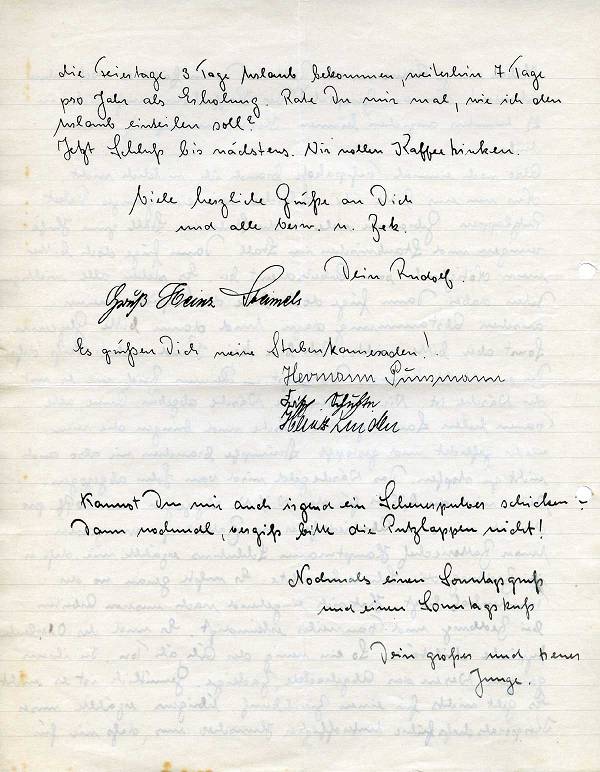 die Feiertage 3 Tage Urlaub bekommen, weiterhin 7 Tage
pro Jahr als Erholung. Rate Du mir mal, wie ich den
Urlaub einteilen soll?
Jetzt Schluß bis nächstens. Wir wollen Kaffeetrinken.
Viele herzliche Grüße an Dich
und alle Verw. u. Bek.
Dein Rudolf.
Gruß Heinz
Es grüßen Dich meine Stubenkameraden!
Hermann Punzmann
Linden
Kannst Du mir auch irgend ein Scheuerpulver schicken?
Dann nochmal, vergiß bitte die Putzlappen nicht!
Nochmals einen Sonntagsgruß
und einen Sonntagskuß
Dein großer und treuer
Junge.